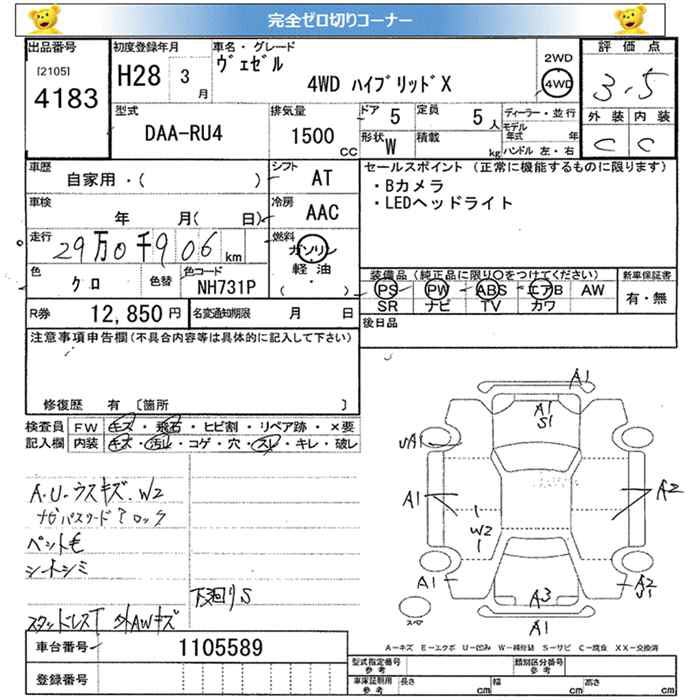 完全ゼロ切りコーナー
出品番号 初度登録年月 車名・グレード 評価点
[2105] 4183 H28 3月 ヴェゼル 4WD ハイブリッドX 2WD 4WD 3.5
型式 排気量 ドア 5 定員 5人 ディーラー・並行 外装 内装
DAA-RU4 1500CC 形状 W 積載 kg モデル年式 年 ハンドル 左・右 C C
車歴 自家用・( ) シフト AT セールスポイント (正常に機能するものに限ります)
・Bカメラ
・LEDヘッドライト
車検 年 月( 日) 冷房 AAC
走行 29万0千906km 燃料 ガソリン 軽油 ( )
色 クロ 色替 色コード NH731P
装備品 (純正品に限り○をつけてください) 新車保証書
PS PW ABS エアB AW 有・無
SR ナビ TV カワ
R券 12,850円 名変通知期限 月 日 後日品
注意事項申告欄(不具合内容等は具体的に記入して下さい)
修復歴 有 〔箇所 〕
検査員記入欄 FW キズ・飛石・ヒビ割・リペア跡・×要
内装 キズ・汚レ・コゲ・穴・スレ・キレ・破レ
A.U.ウスキズ.W2
ナビパスワード ロック
ペット毛
シートシミ
下廻りS
スタッドレスT 外AWキズ
A1
A1
S1
UA1
A1
A2
W2
A1
A3
A2
U1
A1
スペア
A-キズ E-エクボ U-凹み W-補修跡 S-サビ C-腐食 XX-交換済
車台番号 1105589
登録番号
型式指定番号 参考 類別区分番号 参考
車庫証明用 参考 長さ cm 幅 cm 高さ cm